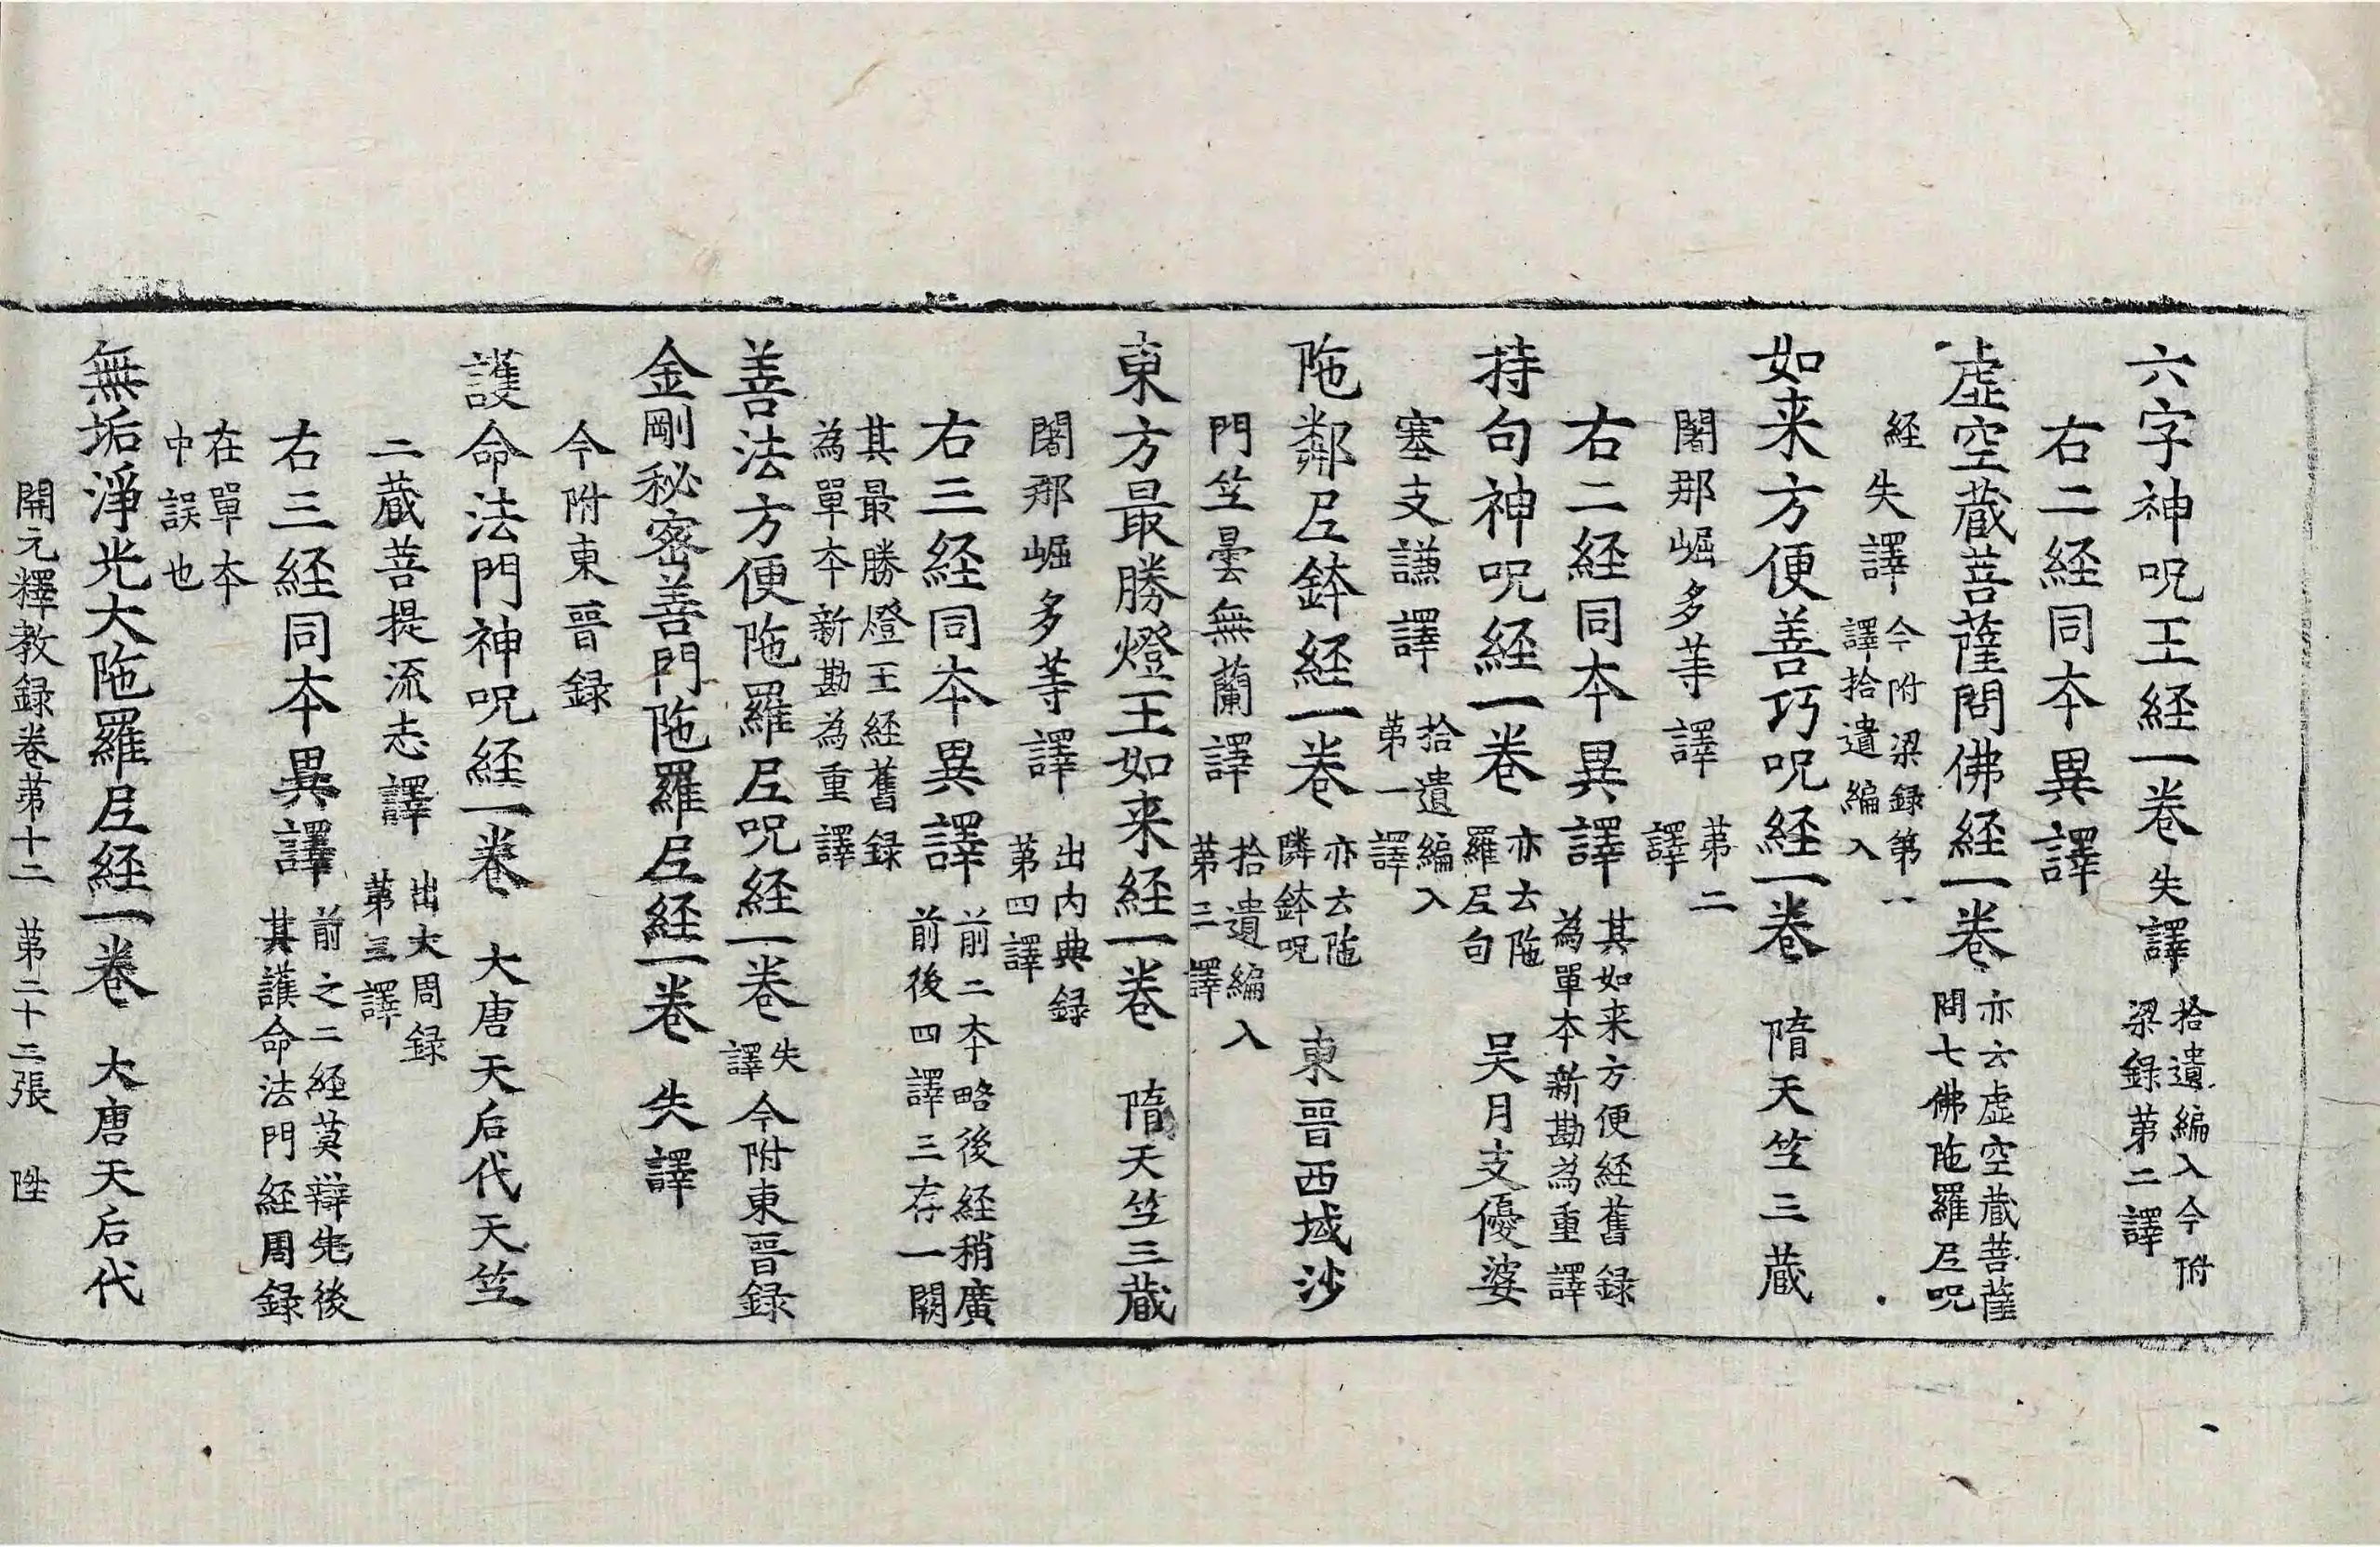 六字神呪王経一巻失譯拾遺編入今附梁録第二譯
右二経同本異譯
虚空蔵菩薩問佛経一巻亦云虚空蔵菩薩問七佛陁羅尼呪
経失譯今附梁録第一譯拾遺編入
如来方便善巧呪経一巻 隋天竺三蔵
闍那崛多等譯第二譯
右二経同本異譯其如来方便経舊録為單本新勘為重譯
持句神呪経一巻亦云陁羅尼句 吴月支優婆
塞支謙譯拾遺編入第一譯
陁鄰尼鉢経一巻亦云陁隣鉢呪 東晉西域沙
門竺曇無蘭譯拾遺編入第三譯
東方最勝燈王如来経一巻 隋天竺三蔵
闍那崛多等譯出内典録第四譯
右三経同本異譯前二本略後経稍廣前後四譯三存一闕
其最勝燈王経舊録為單本新勘為重譯
善法方便陁羅尼呪経一巻失譯今附東晉録
金剛秘密善門陁羅尼経一巻 失譯
今附東晉録
護命法門神呪経一巻 大唐天后代天竺
三蔵菩提流志譯出大周録第三譯
右三経同本異譯前之二経莫辯先後其護命法門経周録
在單本中誤也
無垢淨光大陁羅尼経一巻 大唐天后代
開元釋教録巻第十二 第二十三張 陞